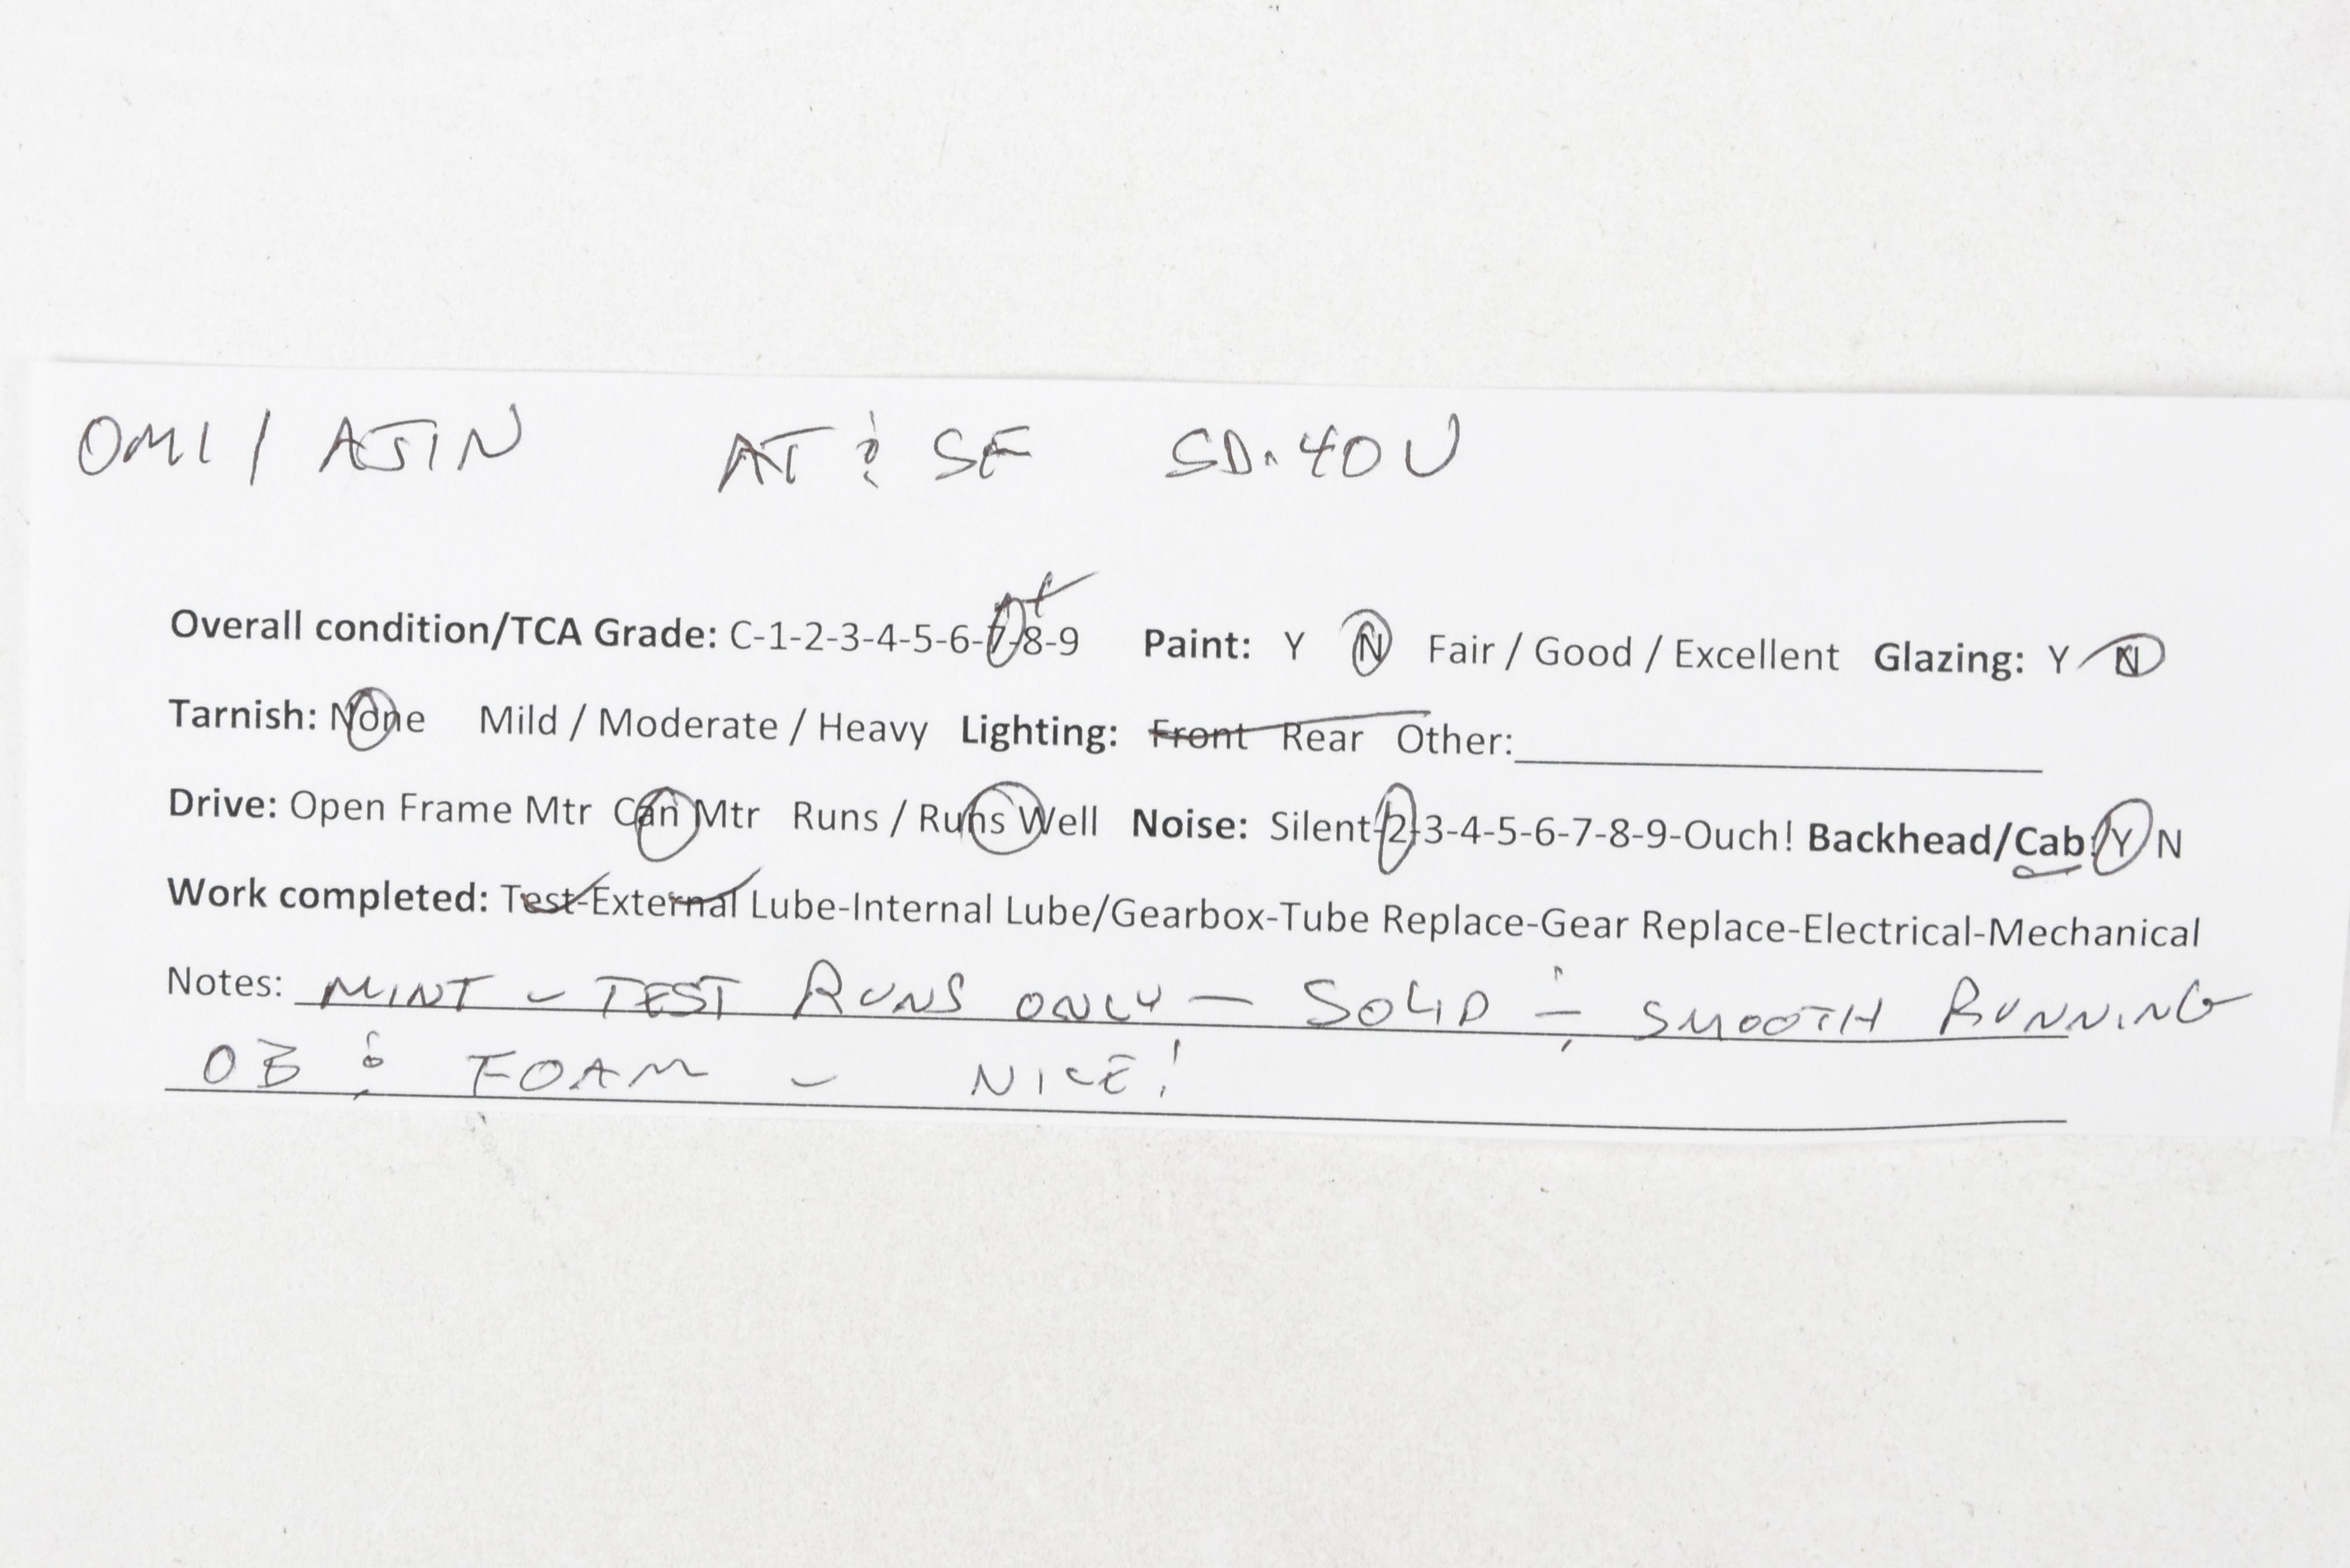 OMI / AJIN AT & SF SD-40U
Overall condition/TCA Grade: C-1-2-3-4-5-6-7-8-9 + Paint: Y N Fair / Good / Excellent Glazing: Y N
Tarnish: None Mild / Moderate / Heavy Lighting: Front Rear Other:
Drive: Open Frame Mtr Can Mtr Runs / Runs Well Noise: Silent-2-3-4-5-6-7-8-9-Ouch! Backhead/Cab: Y N
Work completed: Test-External Lube-Internal Lube/Gearbox-Tube Replace-Gear Replace-Electrical-Mechanical
Notes: MINT - TEST RUNS ONLY - SOLID & SMOOTH RUNNING
OB & FOAM - NICE!